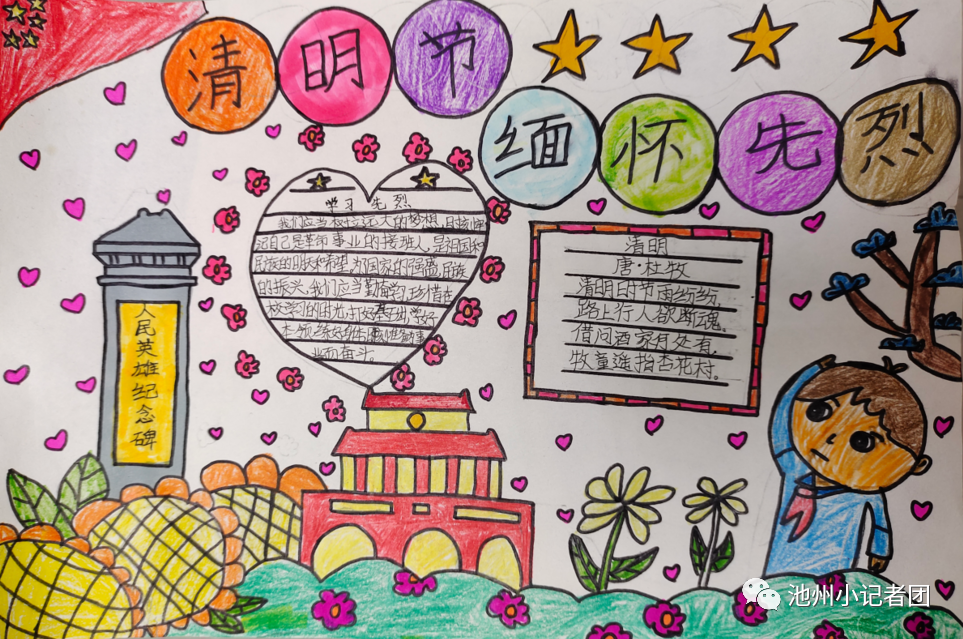 清明节
缅怀先烈
学习先烈
我们应当树立远大的梦想,时刻
记自己是革命事业的接班人,是祖国和
民族的和希望,为国家的强盛,民族
的振兴,我们应当勤奋学习,珍惜在
校学习的时光,打好,学好
本领,练好
业而奋斗。
清明
唐·杜牧
清明时节雨纷纷,
路上行人欲断魂。
借问酒家有处有,
牧童遥指杏花村。
人民英雄纪念碑
池州小记者团